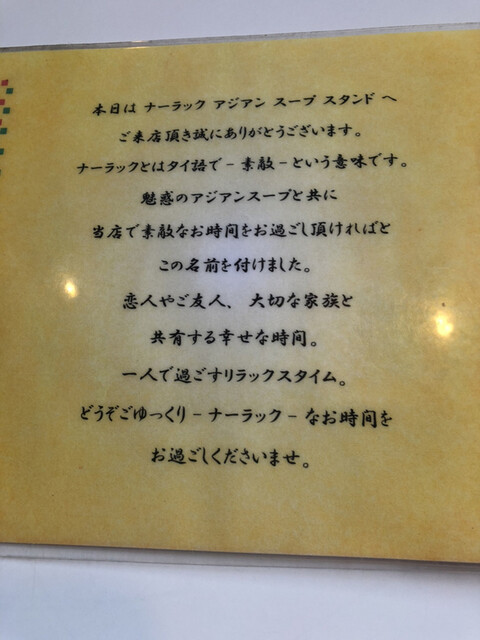 本日は ナーラック アジアン スープ スタンド へ
ご来店頂き誠にありがとうございます。
ナーラックとはタイ語で - 素敵 - という意味です。
魅惑のアジアンスープと共に
当店で素敵なお時間をお過ごし頂ければと
この名前を付けました。
恋人やご友人、大切な家族と
共有する幸せな時間。
一人で過ごすリラックスタイム。
どうぞごゆっくり - ナーラック - なお時間を
お過ごしくださいませ。